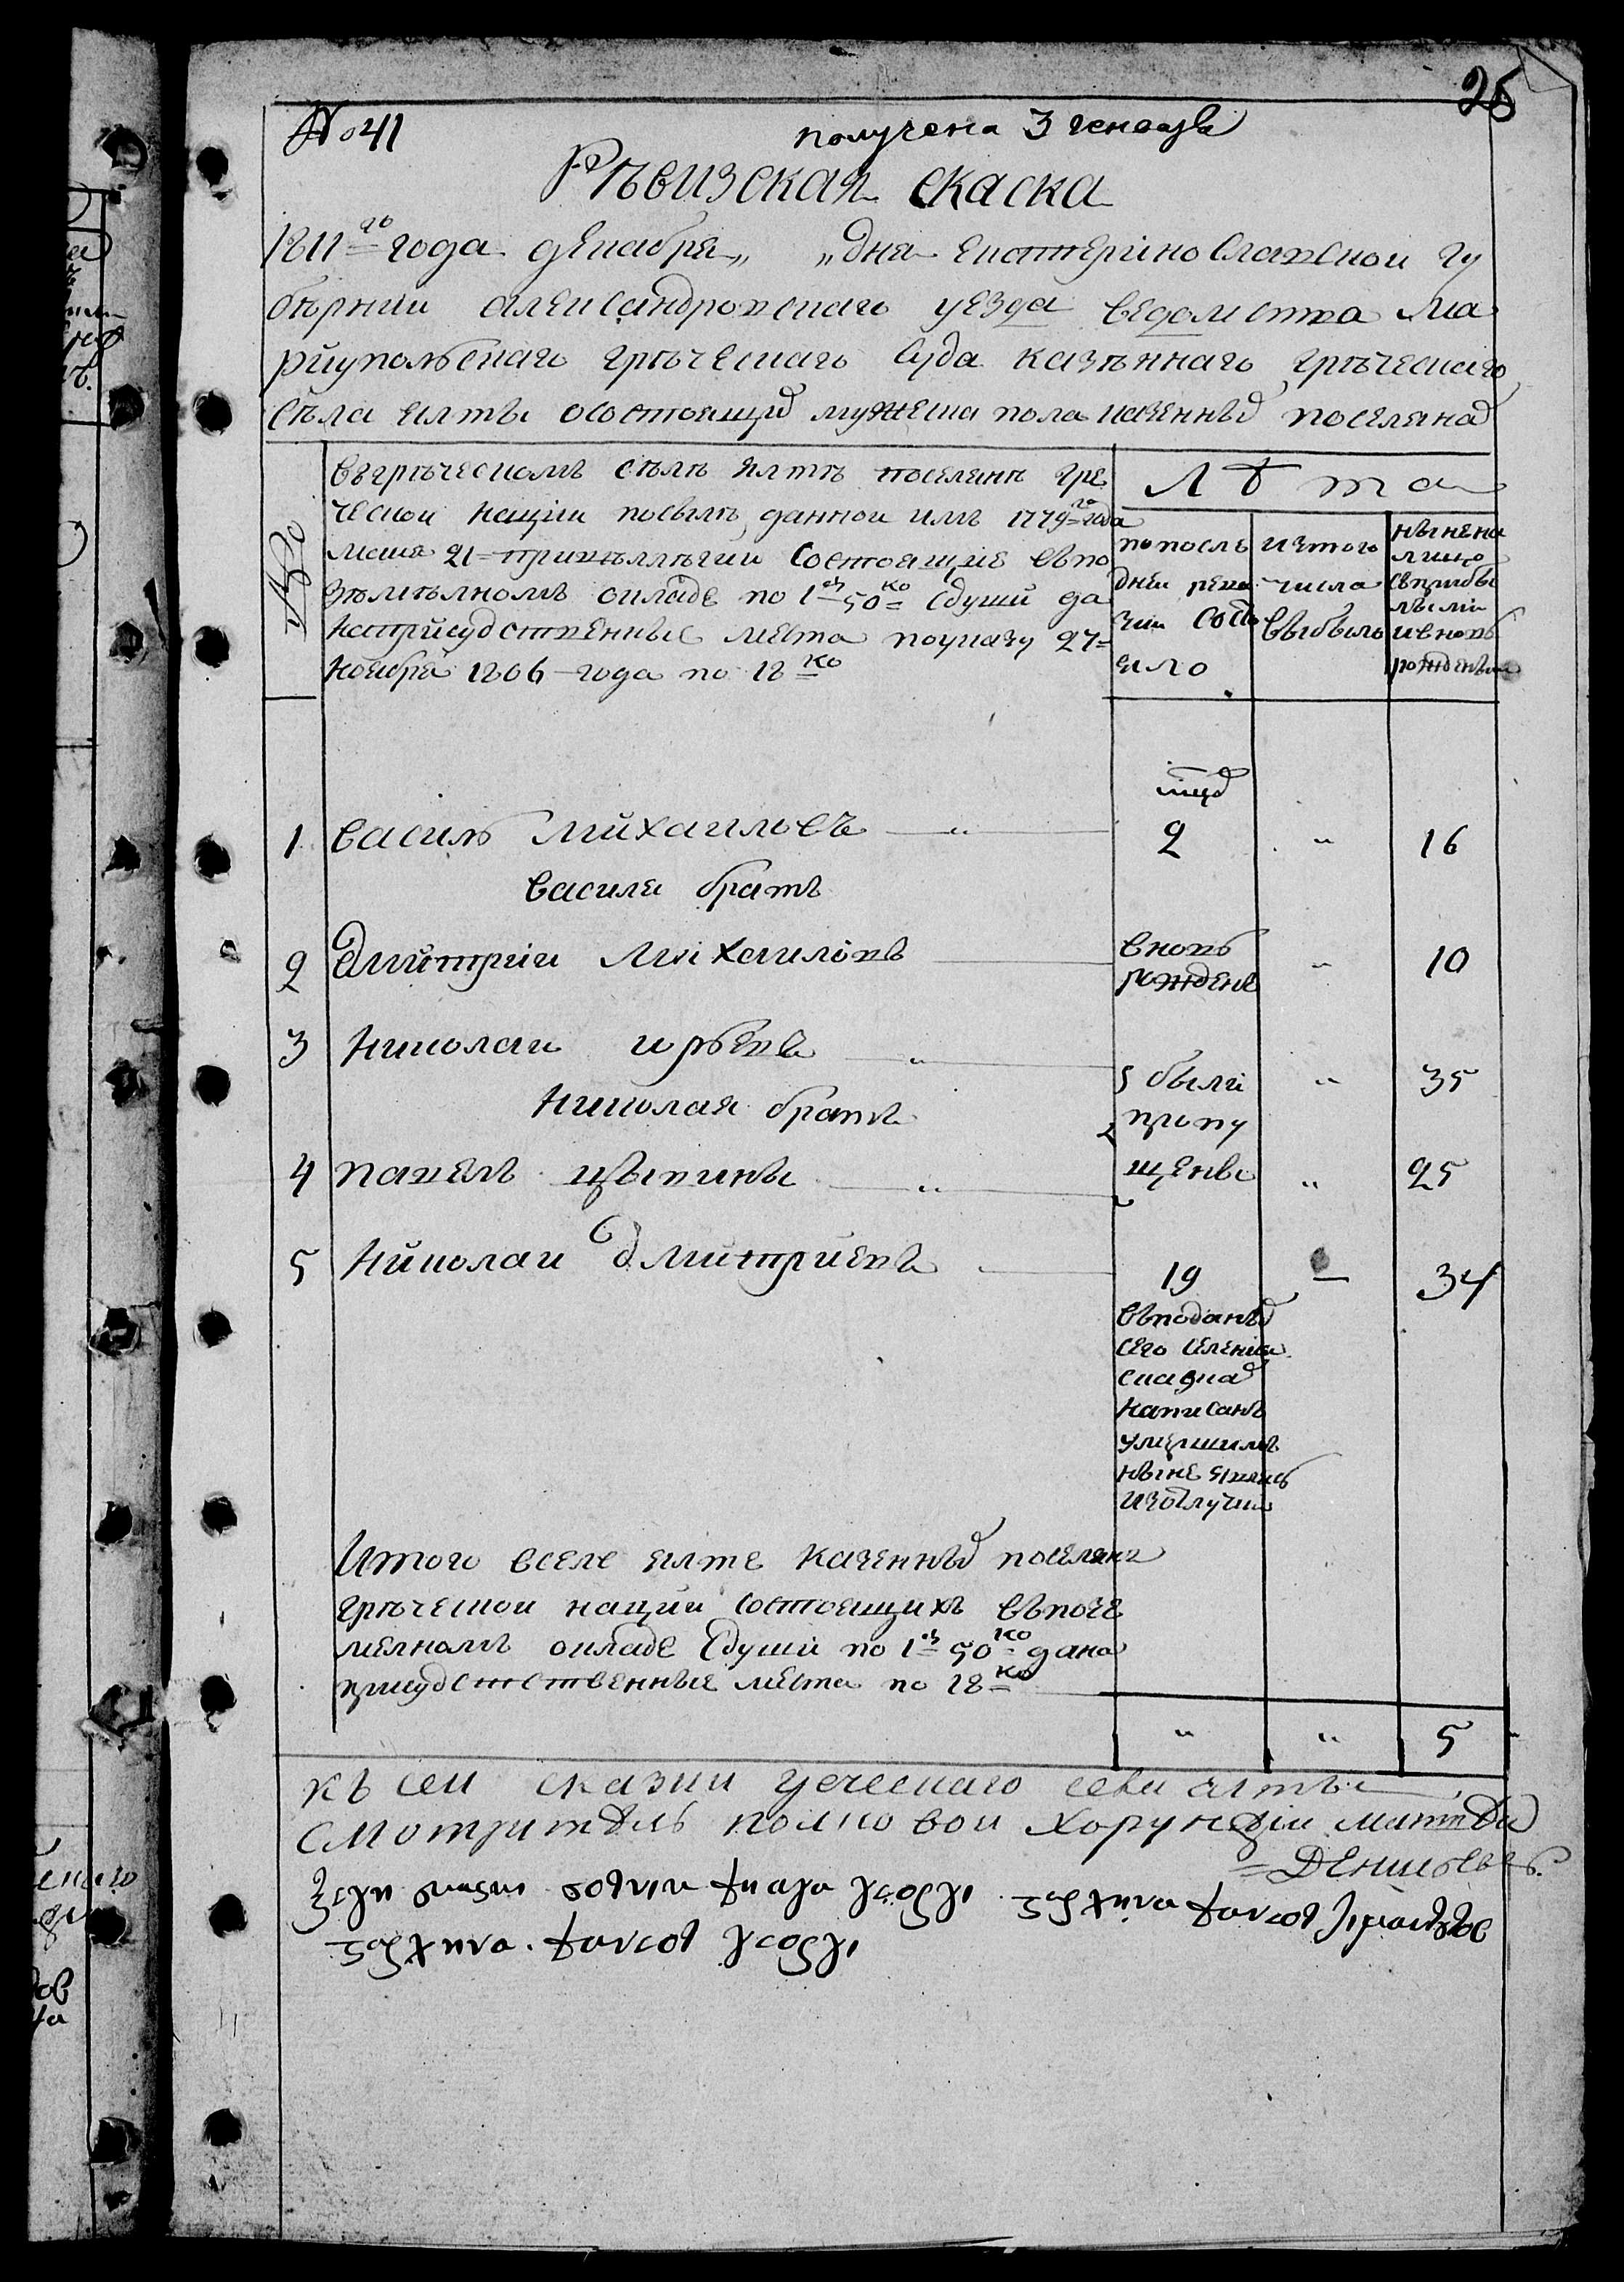 25
№41
получена 3 генваря
Ръвизская скаска
1811го года декабря „ „ дня екоттеринославской гу
бърнии александровскаго уезда ведомства ма
риупольскаго гръческаго суда казъннаго гръческаго
съла ялты осостоящих мужеска пола казенных поселянах
№о
въгръческомъ сълъ ялтъ поселянъ гре
ческой нации посылъ данной имъ 1779го года
маия 21 привъллъгии состоящие впо
зъмълномъ окладе по 1 50ко сдуши да
наприсудственные места поуказу 27
ноября 1806 года по 18ко
Лѣта
по послѣ
дней реви
зии состо
яло
изтого
числа
выбыло
нынена
лицо
сприбы
лыми
ивновь
рожденным
1 василь михаильвъ 2 „ 16
василя братъ
2 дмитрии михаиловъ вновь рожденъ „ 10
3 николаи юрьевъ были „ 35
николая братъ пропу
4 павелъ щены „ 25
5 николаи дмитриевъ 19 — 34
въподаных
сего селения
сказках
написанъ
умершимъ
ныне явясь
изотлучки
Итого вселе ялте казенных поселянъ
гръческой нации состоящихъ въпозе
мелномъ окладе сдуши по 1 50ко дана
присудстственные места по 18ко
„ „ 5
къ сей сказки
смотритель полковой хорунжий